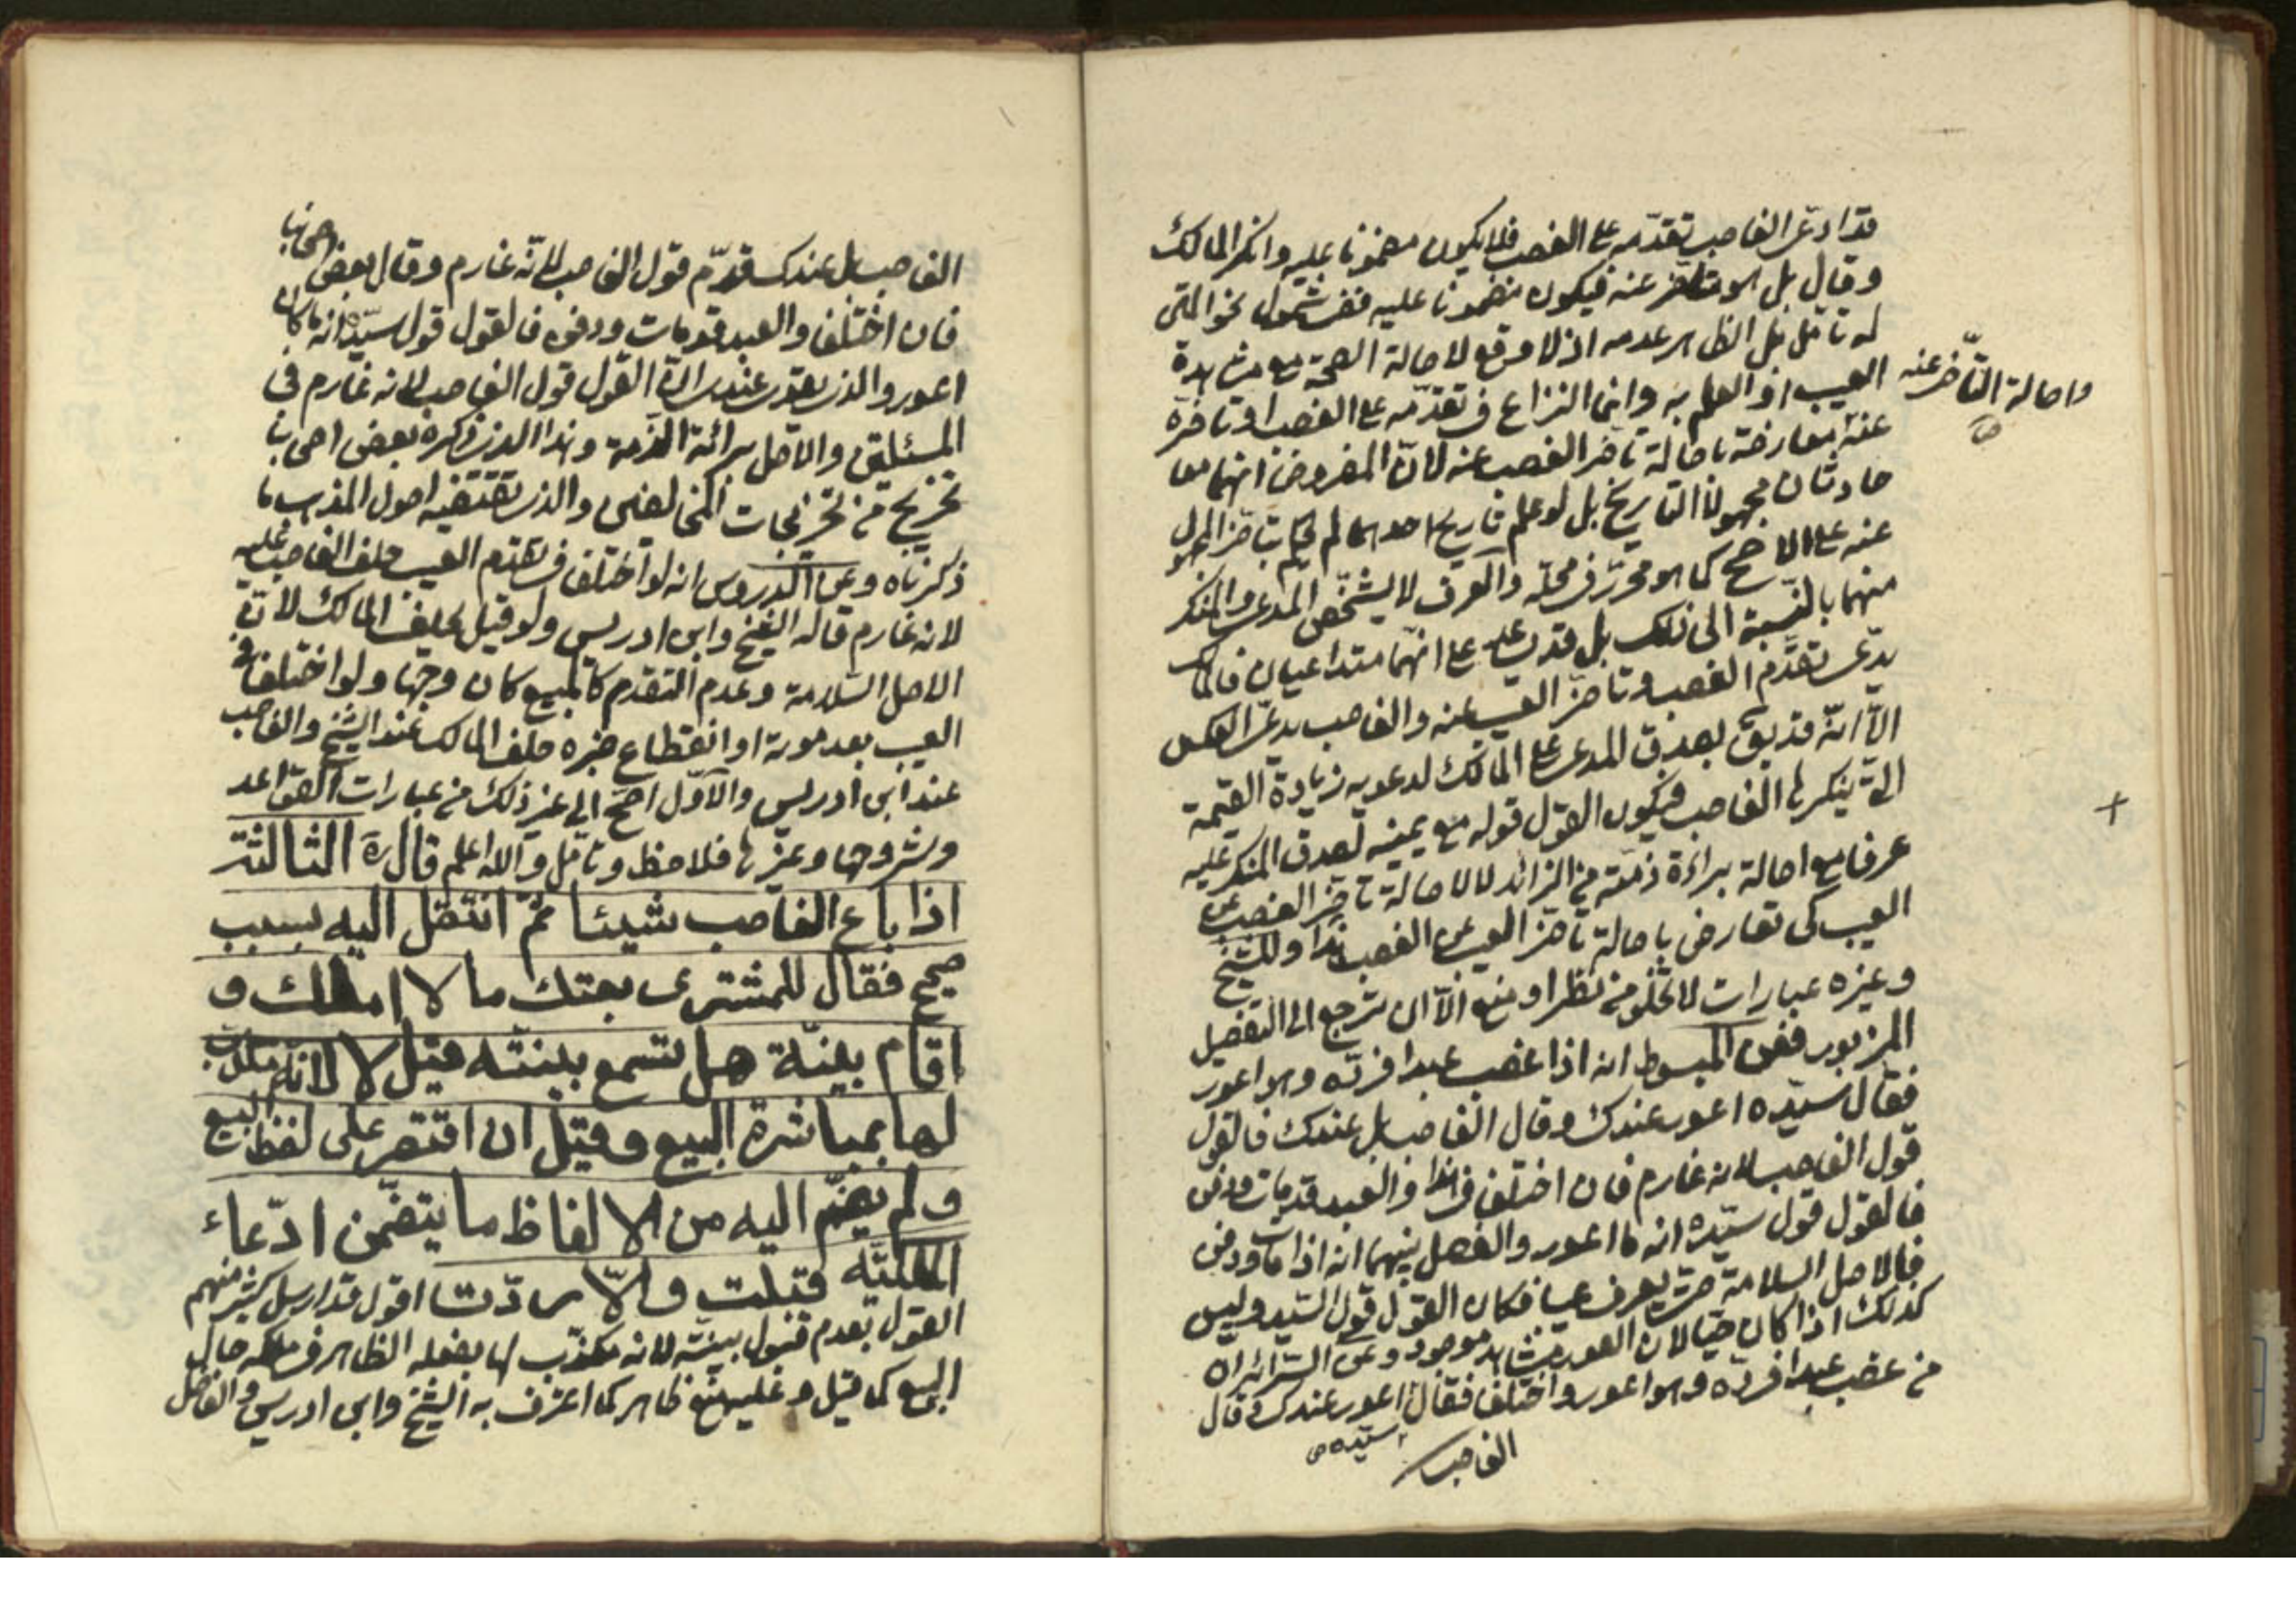 قد ادعى الغاصب تقدمه على الغصب فلا يكون مضمونا عليه وانكر المالك
وقال بل هو متاخر عنه فيكون مضمونا عليه ففى شمول نحو المتن
له تامل بل الظاهر عدمه اذ لا موقع لاصالة الصحة مع مشاهدة
العيب او العلم به وانما النزاع فى تقدمه على الغصب او تاخره
واصالة التأخر عنه
عنه معارضة باصالة تاخر الغصب عنه لان المفروض انهما معا
حادثان مجهولا التاريخ بل لو علم تاريخ احدهما لم يحكم بتاخر المجهول
عنه على الاصح كما هو محرر فى محله والعرف لا يشخص المدعى والمنكر
منهما بالنسبة الى ذلك بل قد يقال عليه على انهما متداعيان فالمالك
يدعى تقدم الغصب وتاخر العيب عنه والغاصب يدعى العكس
الا انه قد يق بصدق المدعى على المالك لدعويه زيادة القيمة
التى ينكرها الغاصب فيكون القول قوله مع يمينه لصدق المنكر عليه
عرفا مع اصالة براءة ذمته من الزائد لا لاصالة تاخر الغصب عن
العيب كى تعارض باصالة تاخر العيب عن الغصب هذا وللشيخ
وغيره عبارات لا تخلو من نظر او منع الا ان ترجع الى التفصيل
المزبور ففى المبسوط انه اذا غصب عبدا فرده وهو اعور
فقال سيده اعور عندك وقال الغاصب بل عندك فالقول
قول الغاصب لانه غارم فان اختلفا فى هذا والعبد قد مات ودفن
فالقول قول سيده انه ما اعور والفصل بينهما انه اذا مات ودفن
فالاصل السلامة حتى يعرف عيبا فكان القول قول السيد وليس
كذلك اذا كان حيا لان العور مشاهد موجود وعن السرائر ان
من غصب عبدا فرده وهو اعور واختلفا فقال اعور عندك وقال
سيده
الغاصب
الغاصب بل عندك قدم قول الغاصب لانه غارم وقال بعض اصحابنا
فان اختلفا والعبد قد مات ودفن فالقول قول سيده انه ما كان
اعور والذى يقوى عندى ان القول قول الغاصب لانه غارم فى
المسئلتين والاصل برائة الذمة وهذا الذى ذكره بعض اصحابنا
تخريج من تخريجات المخالفين والذى تقتضيه اصول المذهب ما
ذكرناه وعن الدروس انه لو اختلفا فى تقدم العيب حلف الغاصب عليه
لانه غارم قاله الشيخ وابن ادريس ولو قيل يحلف المالك لان
الاصل السلامة وعدم التقدم كالمبيع كان وجها ولو اختلفا فى
العيب بعد موته او انقطاع خبره حلف المالك عند الشيخ والغاصب
عند ابن ادريس والاول اصح الى غير ذلك من عبارات القواعد
وشروحها وغيرها فلاحظ وتامل والله اعلم قال ره الثالثة
اذا باع الغاصب شيئا ثم انتقل اليه بسبب
صحيح فقال للمشترى بعتك ما لا املك و
اقام بينة هل تسمع بينته قيل لا لانه مكذب
لها بمباشرة البيع وقيل ان اقتصر على لفظ البيع
ولم يضم اليه من الالفاظ ما يتضمن ادعاء
الملكيه قبلت والا ردت اقول قد ارسل كثير منهم
القول بعدم قبول بينته لانه مكذب لها بفعله الظاهر فى ملكه حال
البيع كما قيل وعليه منع ظاهر كما اعترف به الشيخ وابن ادريس والفاضل